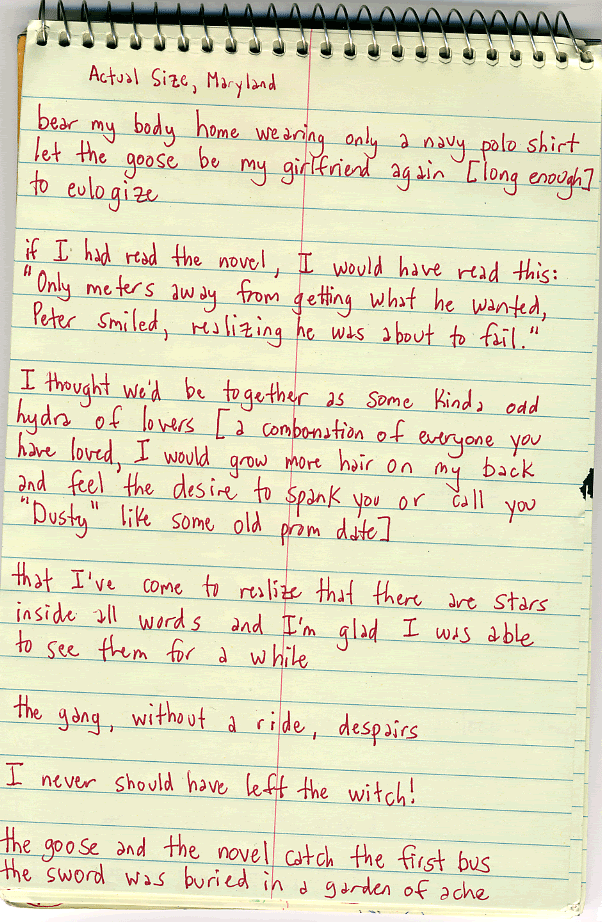 Actual Size, Maryland
bear my body home wearing only a navy polo shirt
let the goose be my girlfriend again [long enough]
to eulogize
if I had read the novel, I would have read this:
"Only meters away from getting what he wanted,
Peter smiled, realizing he was about to fail."
I thought we'd be together as some kinda odd
hydra of lovers [a combonation of everyone you
have loved, I would grow more hair on my back
and feel the desire to spank you or call you
"Dusty" like some old prom date]
that I've come to realize that there are stars
inside all words and I'm glad I was able
to see them for a while
the gang, without a ride, despairs
I never should have left the witch!
the goose and the novel catch the first bus
the sword was buried in a garden of ache